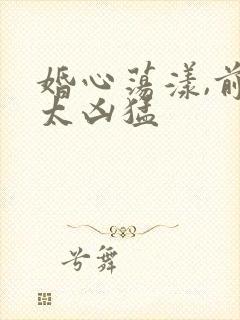 婚心荡漾,前
太凶猛
兮舞